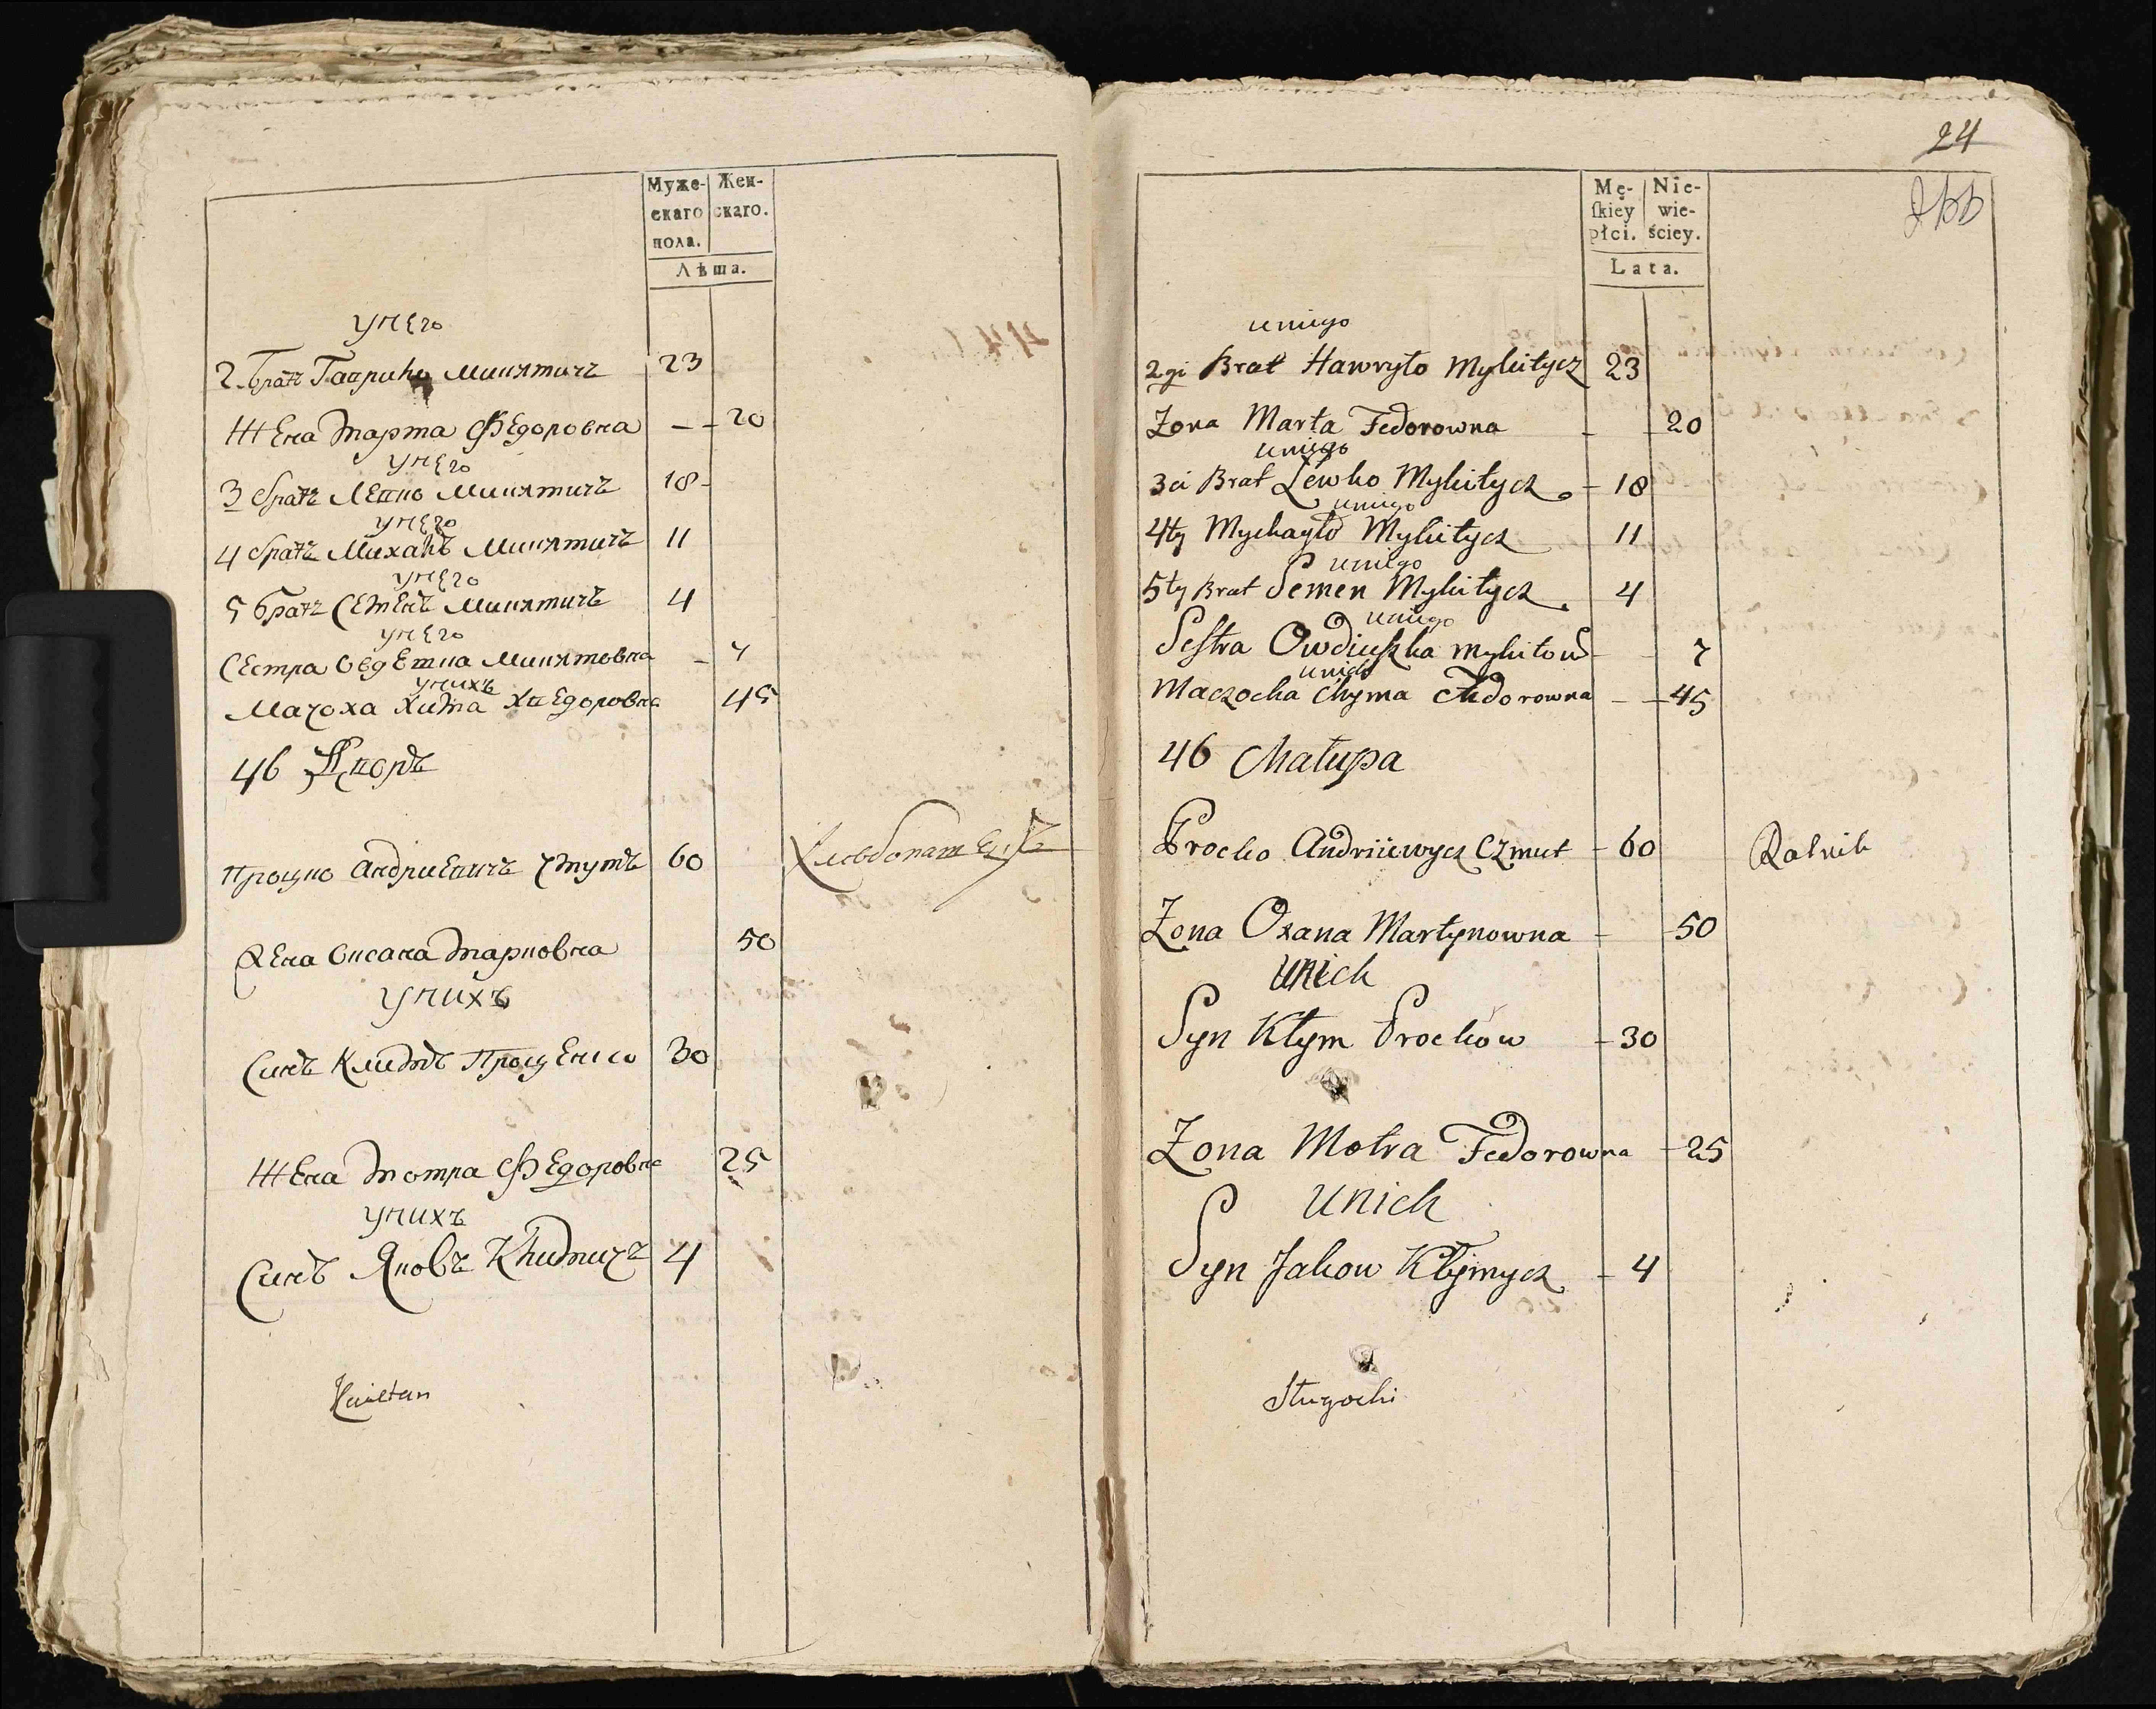 Муже-
скаго
пола.
Жен-
скаго.
Лѣта.
У него
2. братъ Гаврило Микитичъ 23
Жена Марта Федоровна — — 20
У него
3 братъ Левко Микитичъ 18 -
У него
4 братъ Михайло Микитичъ 11
У него
5 братъ Семенъ Микитичъ 4
У него
Сестра Овдюшка Микитовна -
У нихъ
Мачоха Хима Хведоровна 45
46 Двор
Процко Андриевичъ Чмутъ 60 Хлебопашецъ
Жена Оксана Марковна 50
У нихъ
Синъ Климъ Проценко 30
Жена Мотра Федоровна 25
У нихъ
Синъ Яковъ Климичъ 4
24
Mę-
ſkiey
płci.
Nie-
wie-
ściey.
Lata.
u niego
2gi Brat Hawryło Mykitycz 23
Żona Marta Fedorowna - 20
u niego
3ci Brat Lewko Mykitycz - 18
u niego
4ty Mychayło Mykitycz 11
u niego
5ty Brat Semen Mykitycz 4
u niego
Sestra Owdiuszka Mykitow - 7
u nich
Maczocha Chyma Fedorowna - - 45
46 Chałupa
Procko Andriiewycz Czmut - 60 Rolnik
Żona Oxana Martynowna - - 50
u nich
Syn Kłym Prockow - 30
Żona Motra Fedorowna - 25
u nich
Syn Jakow Kłymycz - 4